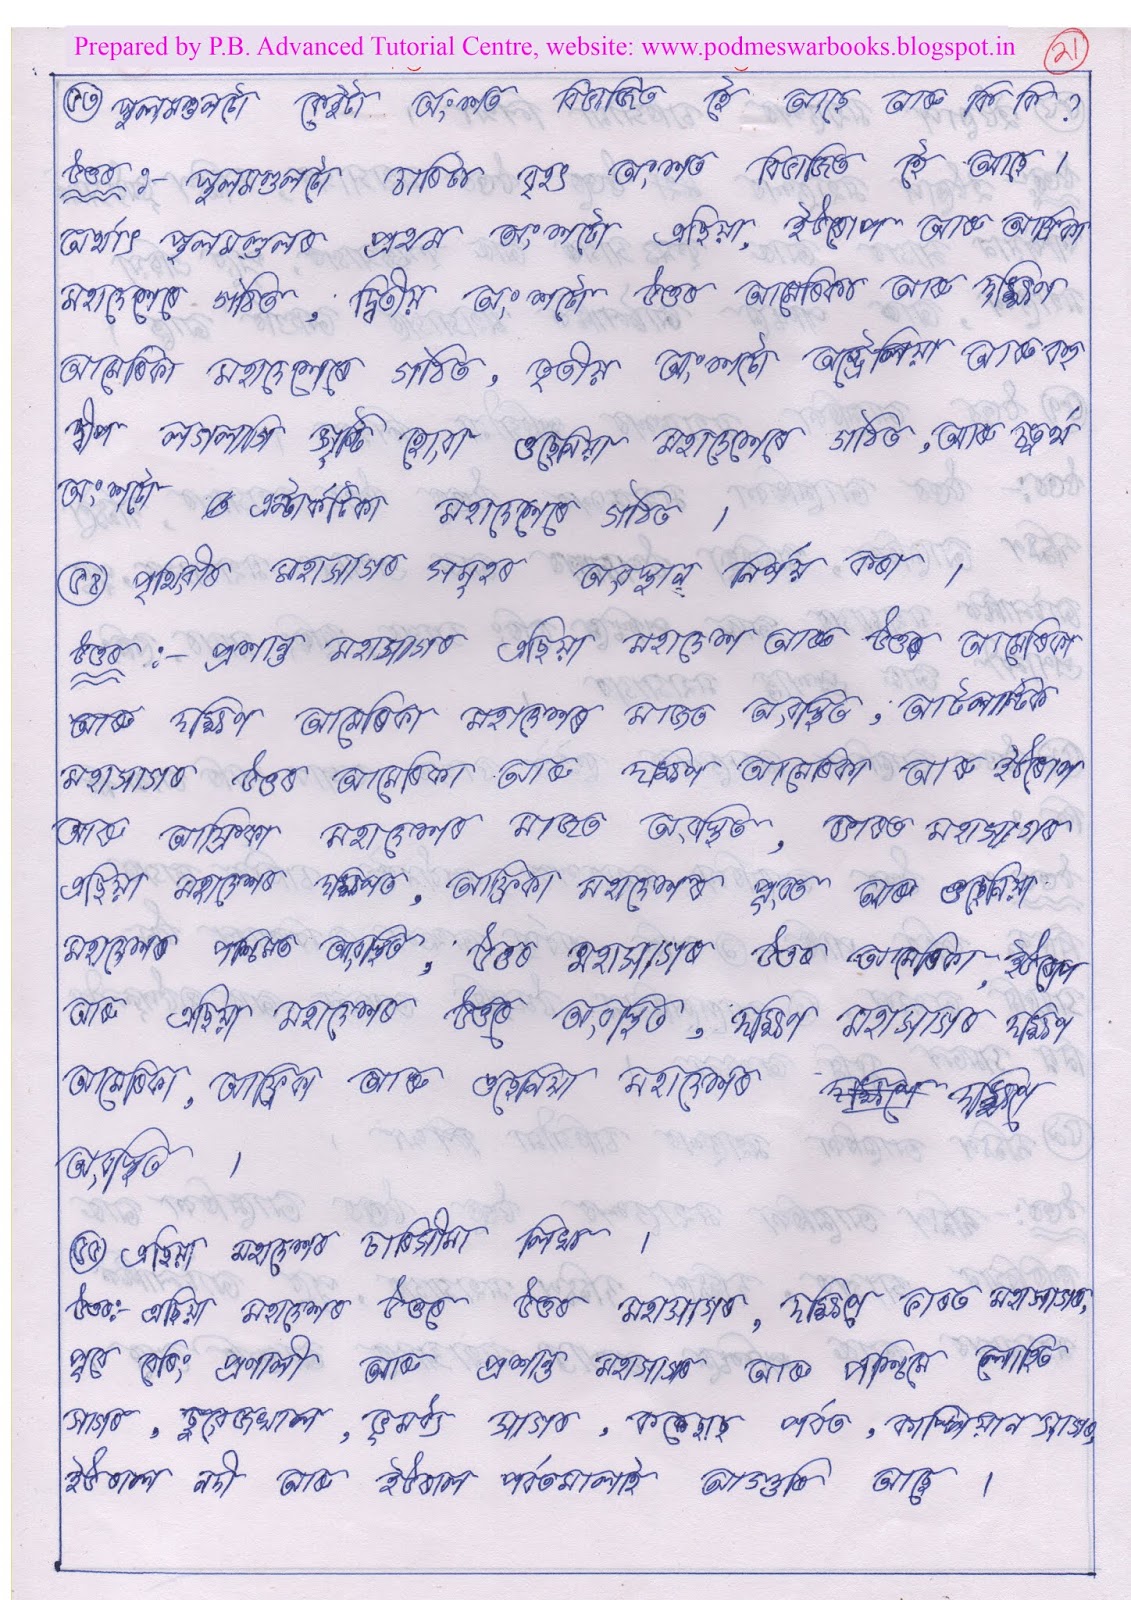 Prepared by P.B. Advanced Tutorial Centre, website: www.podmeswarbooks.blogspot.in
২১
৫৩ স্থলমণ্ডলটো কেইটা অংশত বিভাজিত হৈ আছে আৰু কি কি ?
উত্তৰ :- স্থলমণ্ডলটো চাৰিটা বৃহৎ অংশত বিভাজিত হৈ আছে ।
অৰ্থাৎ স্থলমণ্ডলৰ প্ৰথম অংশটো এছিয়া, ইউৰোপ আৰু আফ্ৰিকা
মহাদেশেৰে গঠিত, দ্বিতীয় অংশটো উত্তৰ আমেৰিকা আৰু দক্ষিণ
আমেৰিকা মহাদেশেৰে গঠিত, তৃতীয় অংশটো অষ্ট্ৰেলিয়া আৰু বহু
দ্বীপ লগলাগি সৃষ্টি হোৱা ওছেনিয়া মহাদেশেৰে গঠিত, আৰু চতুৰ্থ
অংশটো এন্টাৰ্কটিকা মহাদেশেৰে গঠিত ।
৫৪ পৃথিৱীৰ মহাসাগৰ সমূহৰ অৱস্থান নিৰ্ণয় কৰা ।
উত্তৰ :- প্ৰশান্ত মহাসাগৰ এছিয়া মহাদেশ আৰু উত্তৰ আমেৰিকা
আৰু দক্ষিণ আমেৰিকা মহাদেশৰ মাজত অৱস্থিত, আটলাণ্টিক
মহাসাগৰ উত্তৰ আমেৰিকা আৰু দক্ষিণ আমেৰিকা আৰু ইউৰোপ
আৰু আফ্ৰিকা মহাদেশৰ মাজত অৱস্থিত, ভাৰত মহাসাগৰ
এছিয়া মহাদেশৰ দক্ষিণত, আফ্ৰিকা মহাদেশৰ পূৱত আৰু ওছেনিয়া
মহাদেশৰ পশ্চিমত অৱস্থিত, উত্তৰ মহাসাগৰ উত্তৰ আমেৰিকা, ইউৰোপ
আৰু এছিয়া মহাদেশৰ উত্তৰে অৱস্থিত, দক্ষিণ মহাসাগৰ দক্ষিণ
আমেৰিকা, আফ্ৰিকা আৰু ওছেনিয়া মহাদেশৰ দক্ষিণে
অৱস্থিত ।
৫৫ এছিয়া মহাদেশৰ চাৰিসীমা লিখা ।
উত্তৰ:- এছিয়া মহাদেশৰ উত্তৰে উত্তৰ মহাসাগৰ, দক্ষিণে ভাৰত মহাসাগৰ,
পূৱে বেৰিং প্ৰণালী আৰু প্ৰশান্ত মহাসাগৰ আৰু পশ্চিমে লোহিত
সাগৰ, চুৱেজখাল, ভূমধ্য সাগৰ, ককেচাছ পৰ্বত, কাস্পিয়ান সাগৰ,
ইউৰাল নদী আৰু ইউৰাল পৰ্বতমালাই আগুৰি আছে ।